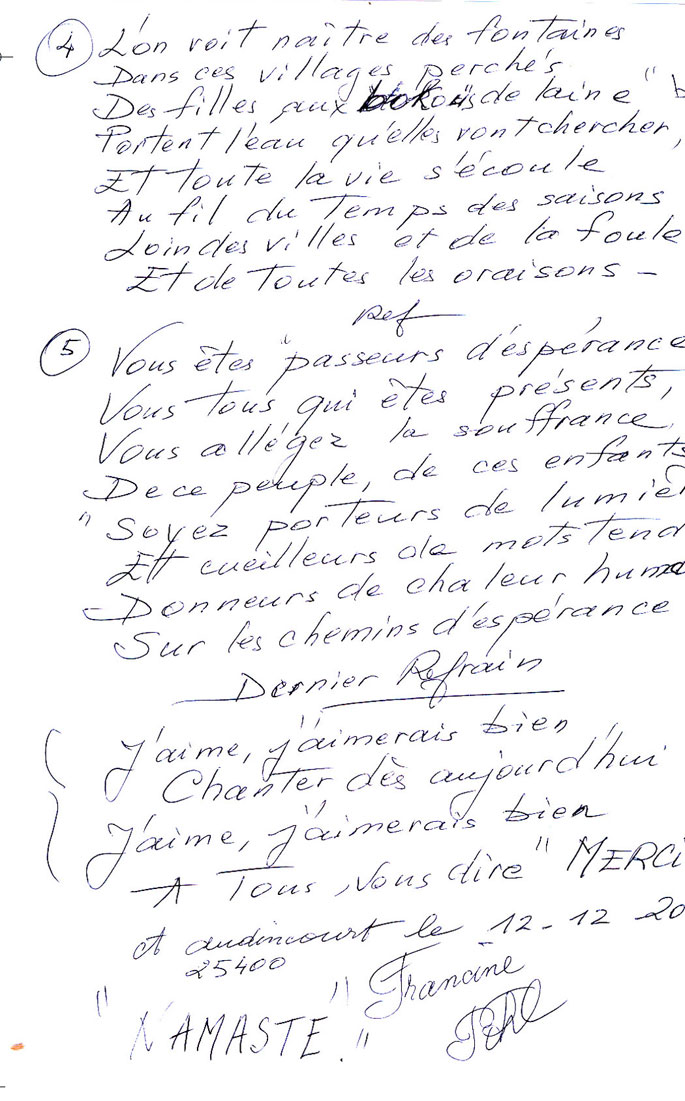 4 L'on voit naître des fontaines
Dans ces villages perchés
Des filles aux de laine"
Portent l'eau qu'elles vont chercher,
Et toute la vie s'écoule
Au fil du Temps des saisons
Loin des villes et de la foule
Et de Toutes les oraisons -
Ref
5 Vous êtes "passeurs d'éspérance
Vous tous qui êtes présents,
Vous allégez la souffrance,
De ce peuple, de ces enfants
"Soyez porteurs de lumiè
Et cueilleurs de mots tend
Donneurs de chaleur huma
Sur les chemins d'espérance
Dernier Refrain
J'aime, j'aimerais bien
Chanter dès aujourd'hui
J'aime, j'aimerais bien
A Tous, vous dire "MERCI
A audincourt le 12-12-20
25400
Francine
"NAMASTE."